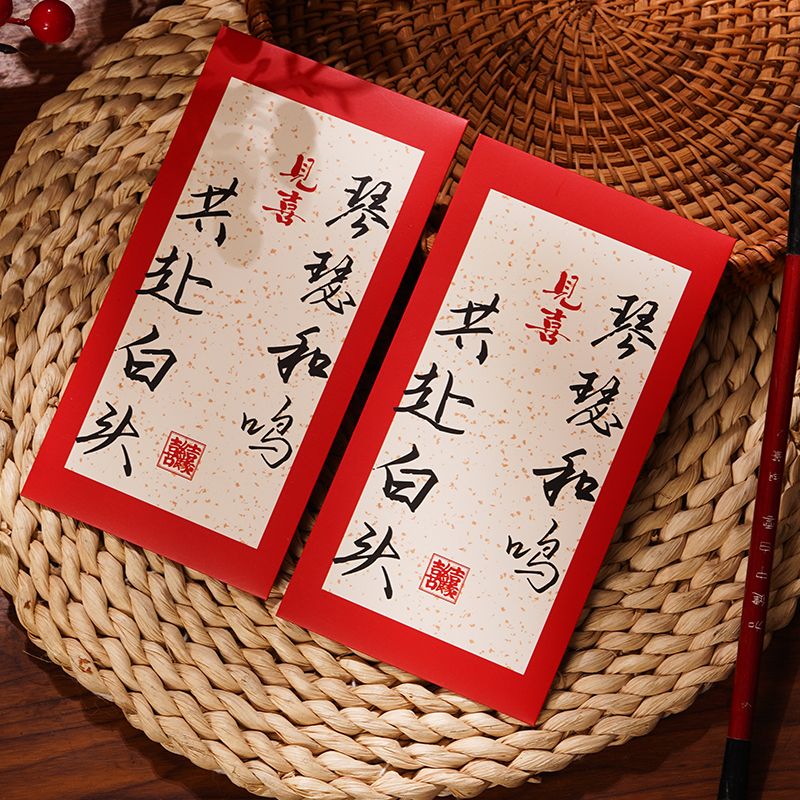 琴瑟和鸣
见喜
共赴白头
琴瑟和鸣
见喜
共赴白头